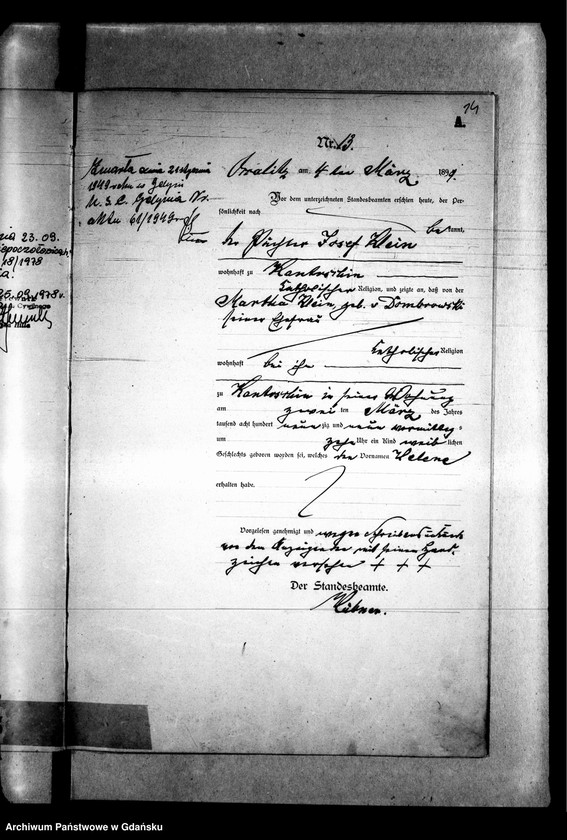 14
A.
Nr. 13.
am 4 ten März 1899.
Vor dem unterzeichneten Standesbeamten erschien heute, der Per-
sönlichkeit nach
bekannt,
der Pächter Josef Klein
wohnhaft zu Kantorskin
katholischer Religion, und zeigte an, daß von der
Martha Klein, geb. v Dombrowski
seiner Ehefrau
katholischer Religion
wohnhaft bei ihm
zu Kantorskin in seiner Wohnung
am zwei ten März des Jahres
tausend acht hundert neun zig und neun vormittags
um zehn Uhr ein Kind weib lichen
Geschlechts geboren worden sei, welches den Vornamen Helene
erhalten habe.
Vorgelesen genehmigt und wegen
von dem Anzeigenden mit seinem Hand-
zeichen versehen + + +
Der Standesbeamte.
Zmarła dnia 21 stycznia
1949 roku w Gdyni
U. S. C. Gdynia Nr.
aktu 61/1949
23. 09.
18/1978
25.09.1978 r.
Archiwum Państwowe w Gdańsku